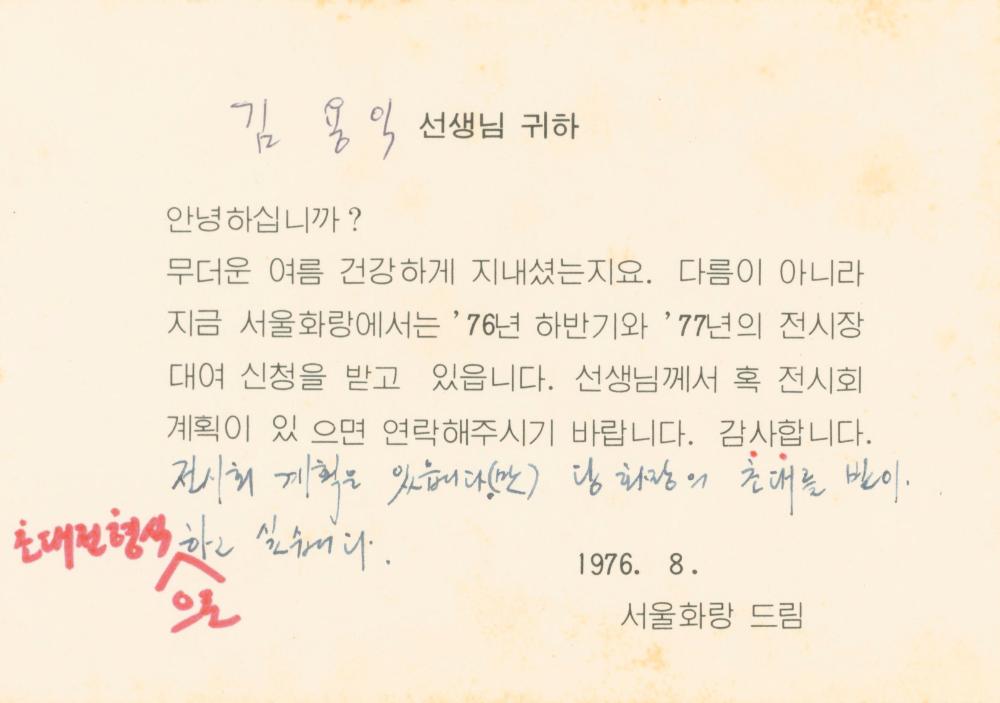 김 용익 선생님 귀하
안녕하십니까?
무더운 여름 건강하게 지내셨는지요. 다름이 아니라
지금 서울화랑에서는 ’76년 하반기와 ’77년의 전시장
대여 신청을 받고 있읍니다. 선생님께서 혹 전시회
계획이 있 으면 연락해주시기 바랍니다. 감사합니다.
전시회 계획은 있읍니다(만) 당 화랑의 초대를 받아.
초대전형식 하고 싶습니다.
으로
1976. 8.
서울화랑 드림